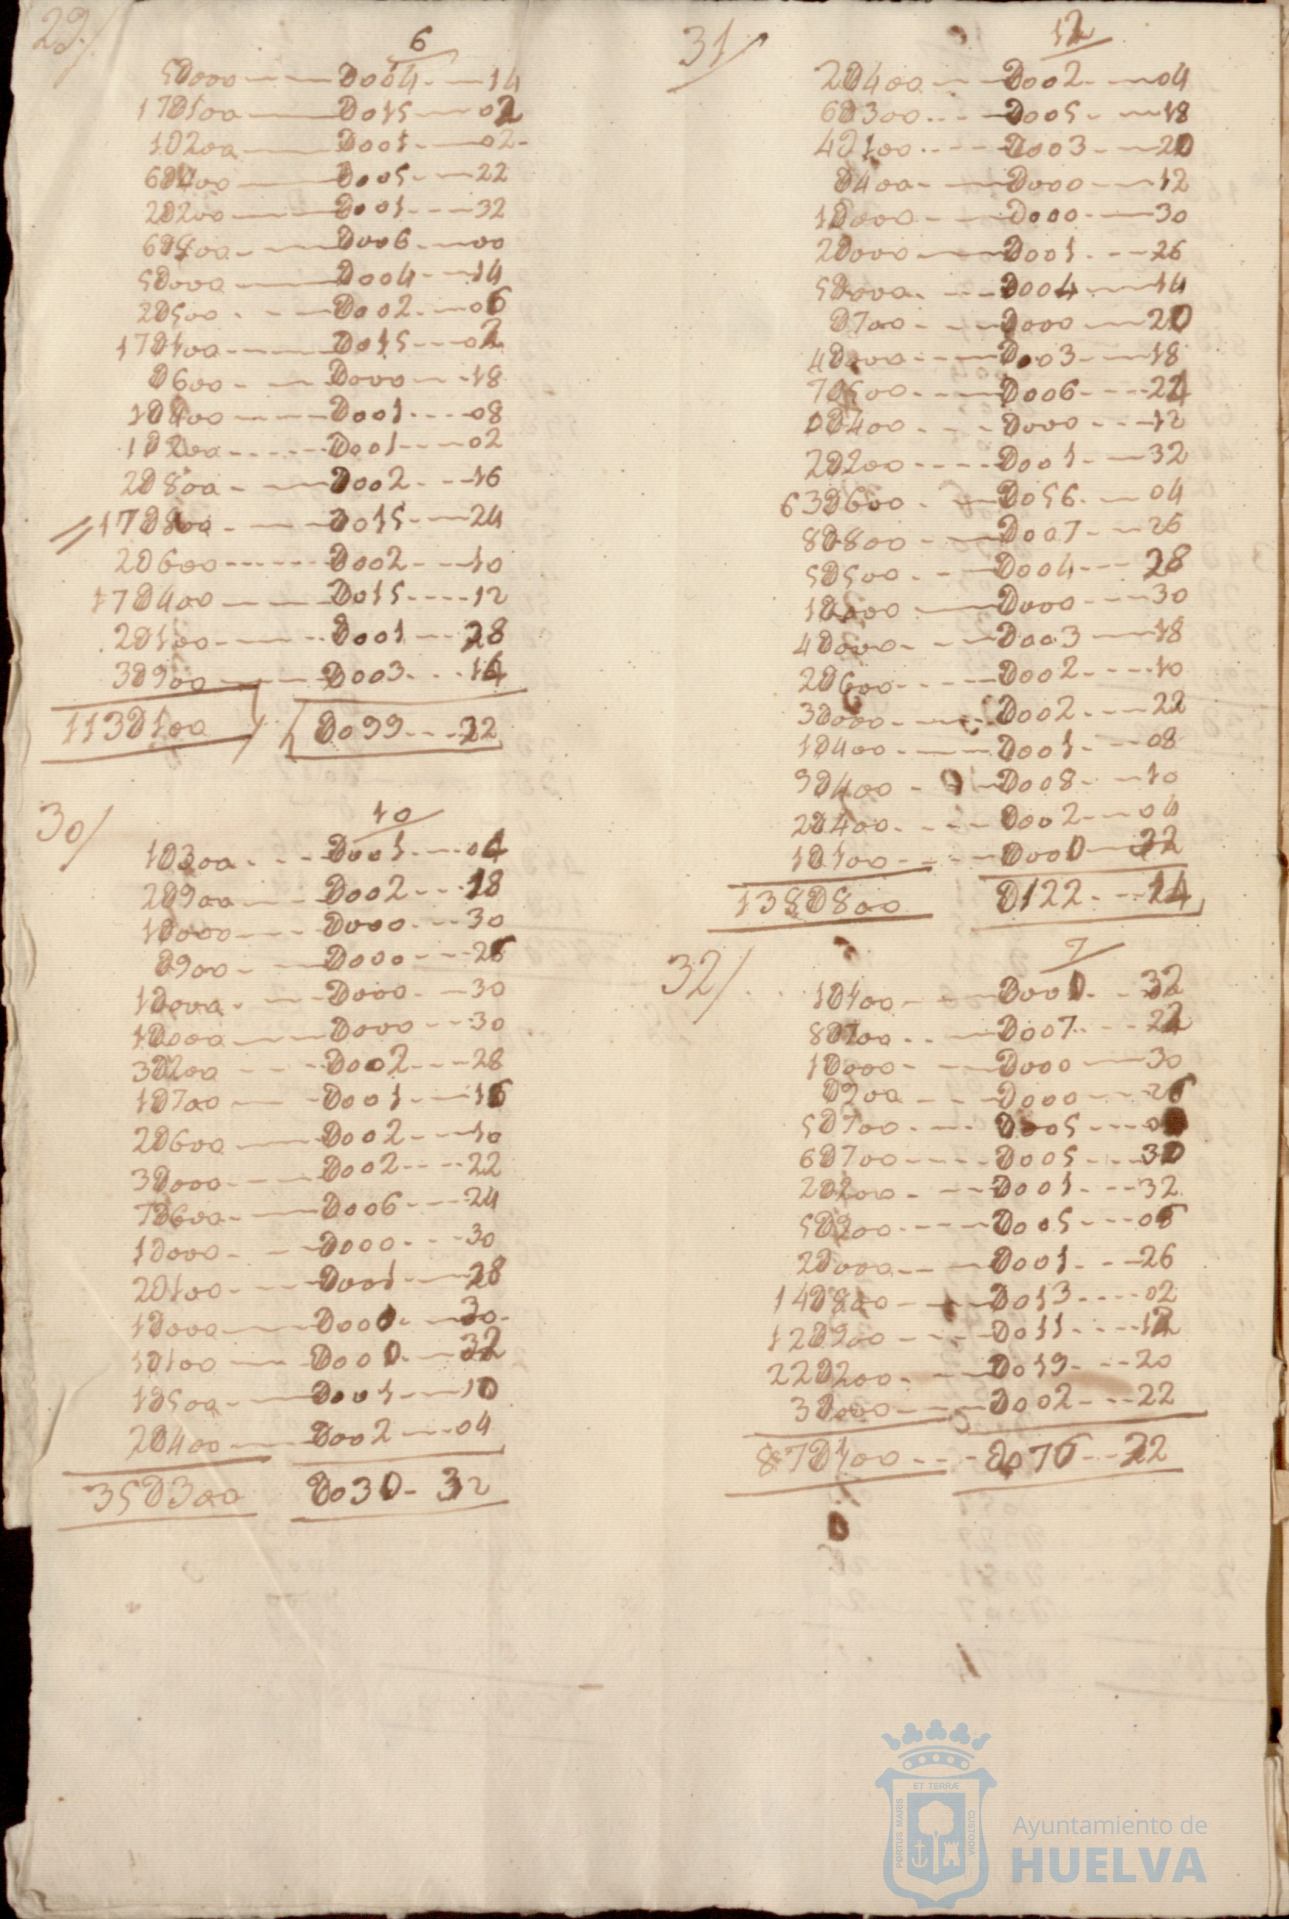 29/
6
5D000 — D004 — 14
17D100 — D015 — 02
1D200 — D001 — 02
6D400 — D005 — 22
2D200 — D001 — 32
6D800 — D006 — 00
5D000 — D004 — 14
2D500 — D002 — 06
17D100 — D015 — 02
D600 — D000 — 18
1D400 — D001 — 08
1D200 — D001 — 02
2D800 — D002 — 16
17D800 — D015 — 24
2D600 — D002 — 10
17D400 — D015 — 12
2D100 — D001 — 28
3D900 — D003 — 14
113D100 D099 — 22
30/
10
1D300 — D001 — 04
2D900 — D002 — 18
1D000 — D000 — 30
D900 — D000 — 26
1D000 — D000 — 30
1D000 — D000 — 30
3D200 — D002 — 28
1D700 — D001 — 16
2D600 — D002 — 10
3D000 — D002 — 22
7D600 — D006 — 24
1D000 — D000 — 30
2D100 — D001 — 28
1D000 — D000 — 30
1D100 — D000 — 32
1D500 — D001 — 10
2D400 — D002 — 04
35D300 D030 — 32
31/
12
2D400 — D002 — 04
6D300 — D005 — 18
4D100 — D003 — 20
D400 — D000 — 12
1D000 — D000 — 30
2D000 — D001 — 26
5D000 — D004 — 14
D700 — D000 — 20
4D000 — D003 — 18
7D500 — D006 — 22
D400 — D000 — 12
2D200 — D001 — 32
63D600 — D056 — 04
8D800 — D007 — 26
5D500 — D004 — 28
1D000 — D000 — 30
4D000 — D003 — 18
2D600 — D002 — 10
3D000 — D002 — 22
1D400 — D001 — 08
9D400 — D008 — 10
2D400 — D002 — 04
1D100 — D000 — 32
138D800 D122 — 14
32/
7
1D100 — D000 — 32
8D700 — D007 — 22
1D000 — D000 — 30
D900 — D000 — 26
5D700 — D005
6D700 — D005 — 30
2D200 — D001 — 32
5D900 — D005 — 06
2D000 — D001 — 26
14D800 — D013 — 02
12D900 — D011 — 12
22D200 — D019 — 20
3D000 — D002 — 22
87D100 — D076 — 22
ET TERRÆ
PORTUS MARIS
CUSTODIA
Ayuntamiento de
HUELVA